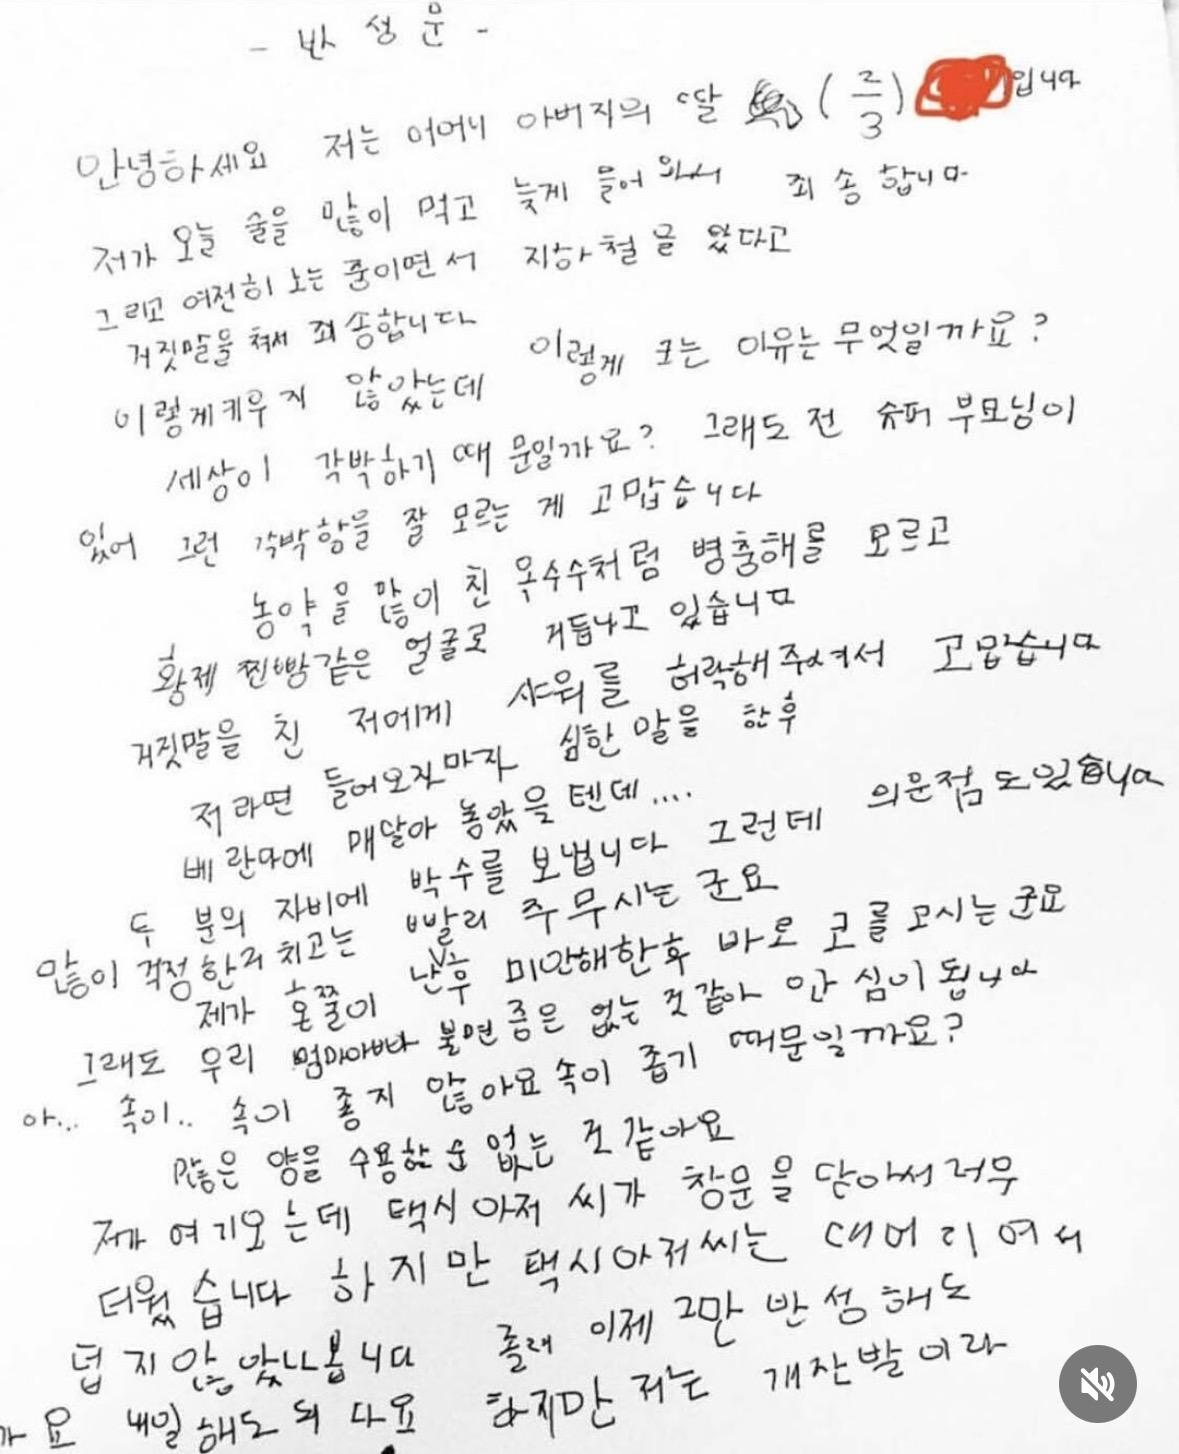 - 반 성 문 -
안녕하세요 저는 어머니 아버지의 딸 (2/3) 입니다
저가 오늘 술을 많이 먹고 늦게 들어 와서 죄송합니다
그리고 여전히 노는 중이면서 지하철을 탔다고
거짓말을 쳐서 죄송합니다
이렇게 키우지 않았는데 이렇게 크는 이유는 무엇일까요?
세상이 각박하기 때문일까요? 그래도 전 슈퍼 부모님이
있어 그런 각박함을 잘 모르는 게 고맙습니다
농약을 많이 친 옥수수처럼 병충해를 모르고
황제 찐빵같은 얼굴로 거듭나고 있습니다
거짓말을 친 저에게 샤워를 허락해주셔서 고맙습니다
저라면 들어오자마자 심한 말을 한후
베란다에 매달아 놓았을 텐데....
두 분의 자비에 박수를 보냅니다 그런데 의문점도 있습니다
많이 걱정한거 치고는 빨리 주무시는군요
제가 혼쭐이 난후 미안해한후 바로 코를 고시는군요
그래도 우리 엄마아빠 불면증은 없는 것 같아 안심이 됩니다
아... 속이.. 속이 좋지 않아요 속이 좁기 때문일까요?
많은 양을 수용할 순 없는 것 같아요
제가 여기오는데 택시 아저씨가 창문을 닫아서 너무
더웠습니다 하지만 택시아저씨는 대머리여서
덥지 않았나봅니다 졸려 이제 그만 반성해도
가요 내일 해도 되 다요 하지만 저는 개잔발이라